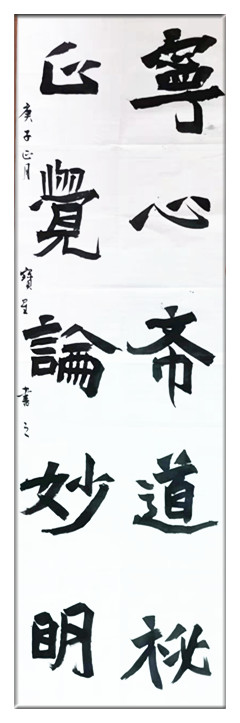 寧心斋道秘
正覺論妙明
庚子正月 寶星 書之